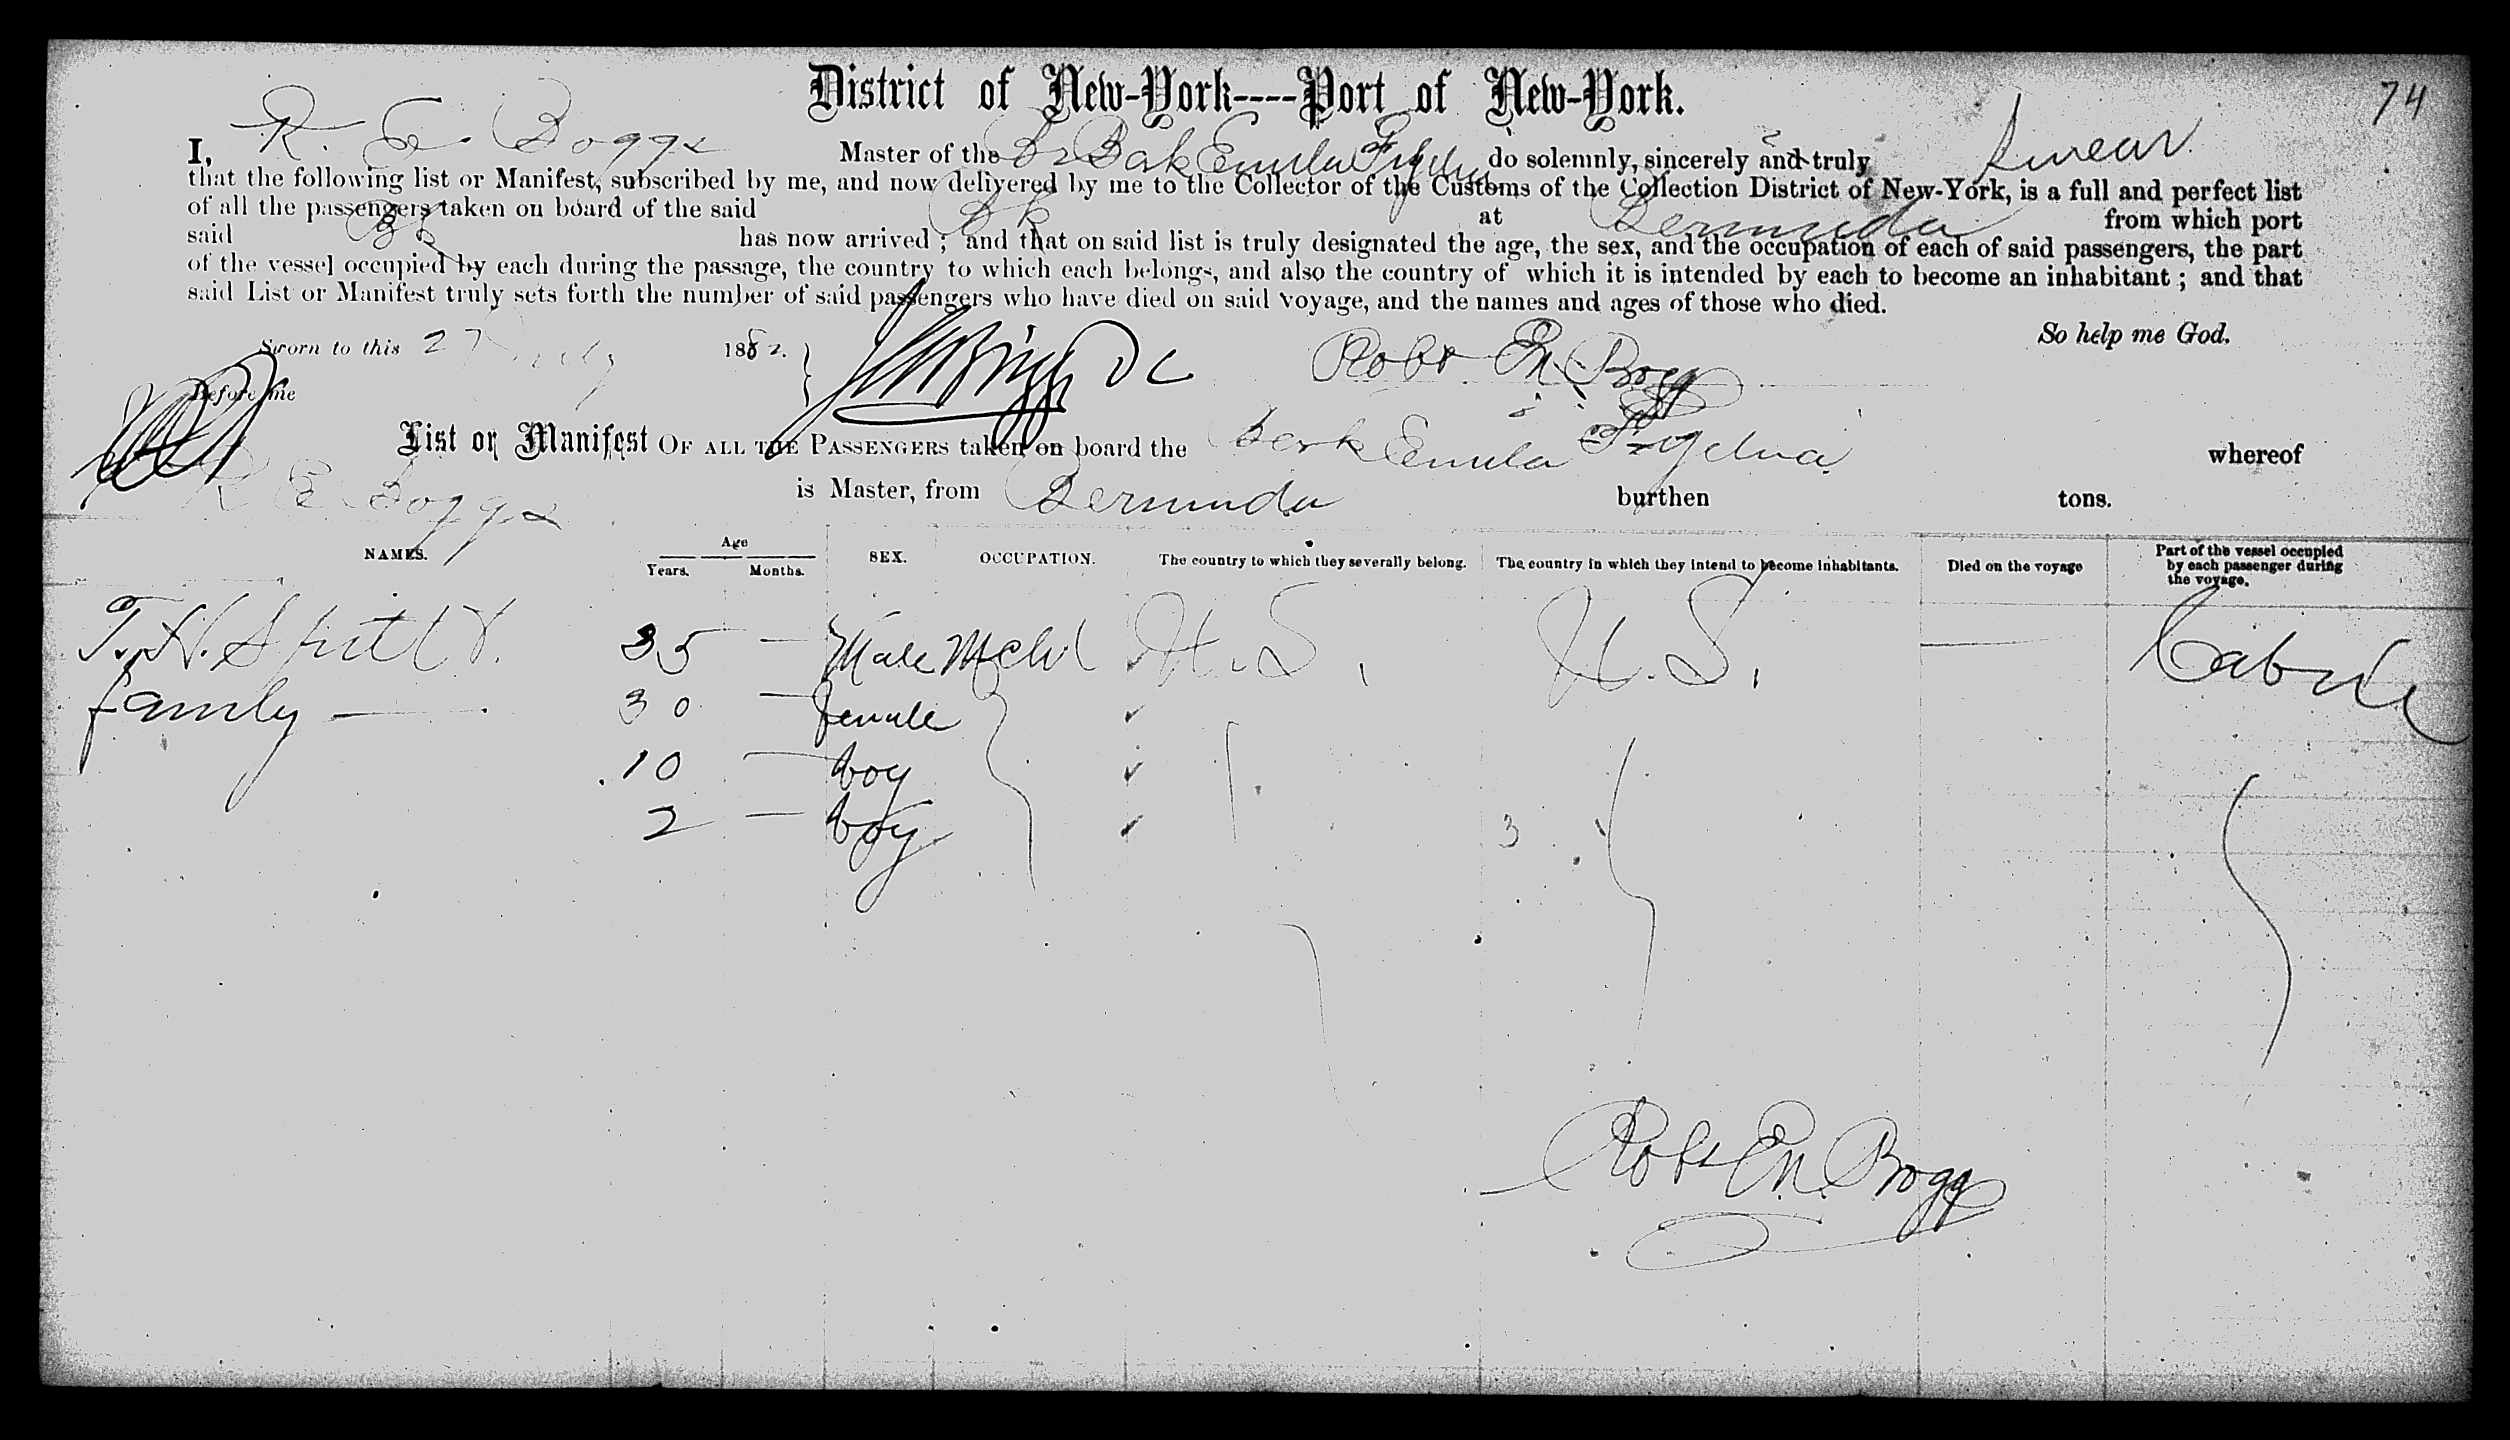 District of New-York----Port of New-York.
74
I, R. E. Boggs Master of the Br Bark Emula do solemnly, sincerely and truly Swear
that the following list or Manifest, subscribed by me, and now delivered by me to the Collector of the Customs of the Collection District of New-York, is a full and perfect list
of all the passengers taken on board of the said Bk at Bermuda from which port
said Bk has now arrived ; and that on said list is truly designated the age, the sex, and the occupation of each of said passengers, the part
of the vessel occupied by each during the passage, the country to which each belongs, and also the country of which it is intended by each to become an inhabitant ; and that
said List or Manifest truly sets forth the number of said passengers who have died on said voyage, and the names and ages of those who died.
So help me God.
Sworn to this 27 July 1882. Robt En Boggs
Before me
List or Manifest OF ALL THE PASSENGERS taken on board the Bark Emula whereof
R E Boggs is Master, from Bermuda burthen tons.
NAMES. Age Years. Months. SEX. OCCUPATION. The country to which they severally belong. The country in which they intend to become inhabitants. Died on the voyage Part of the vessel occupied by each passenger during the voyage.
T. H. 35 — Male U. S. U. S. —
family — 30 — female ✓
10 — boy ✓
2 — boy ✓ 3
Robt En Boggs